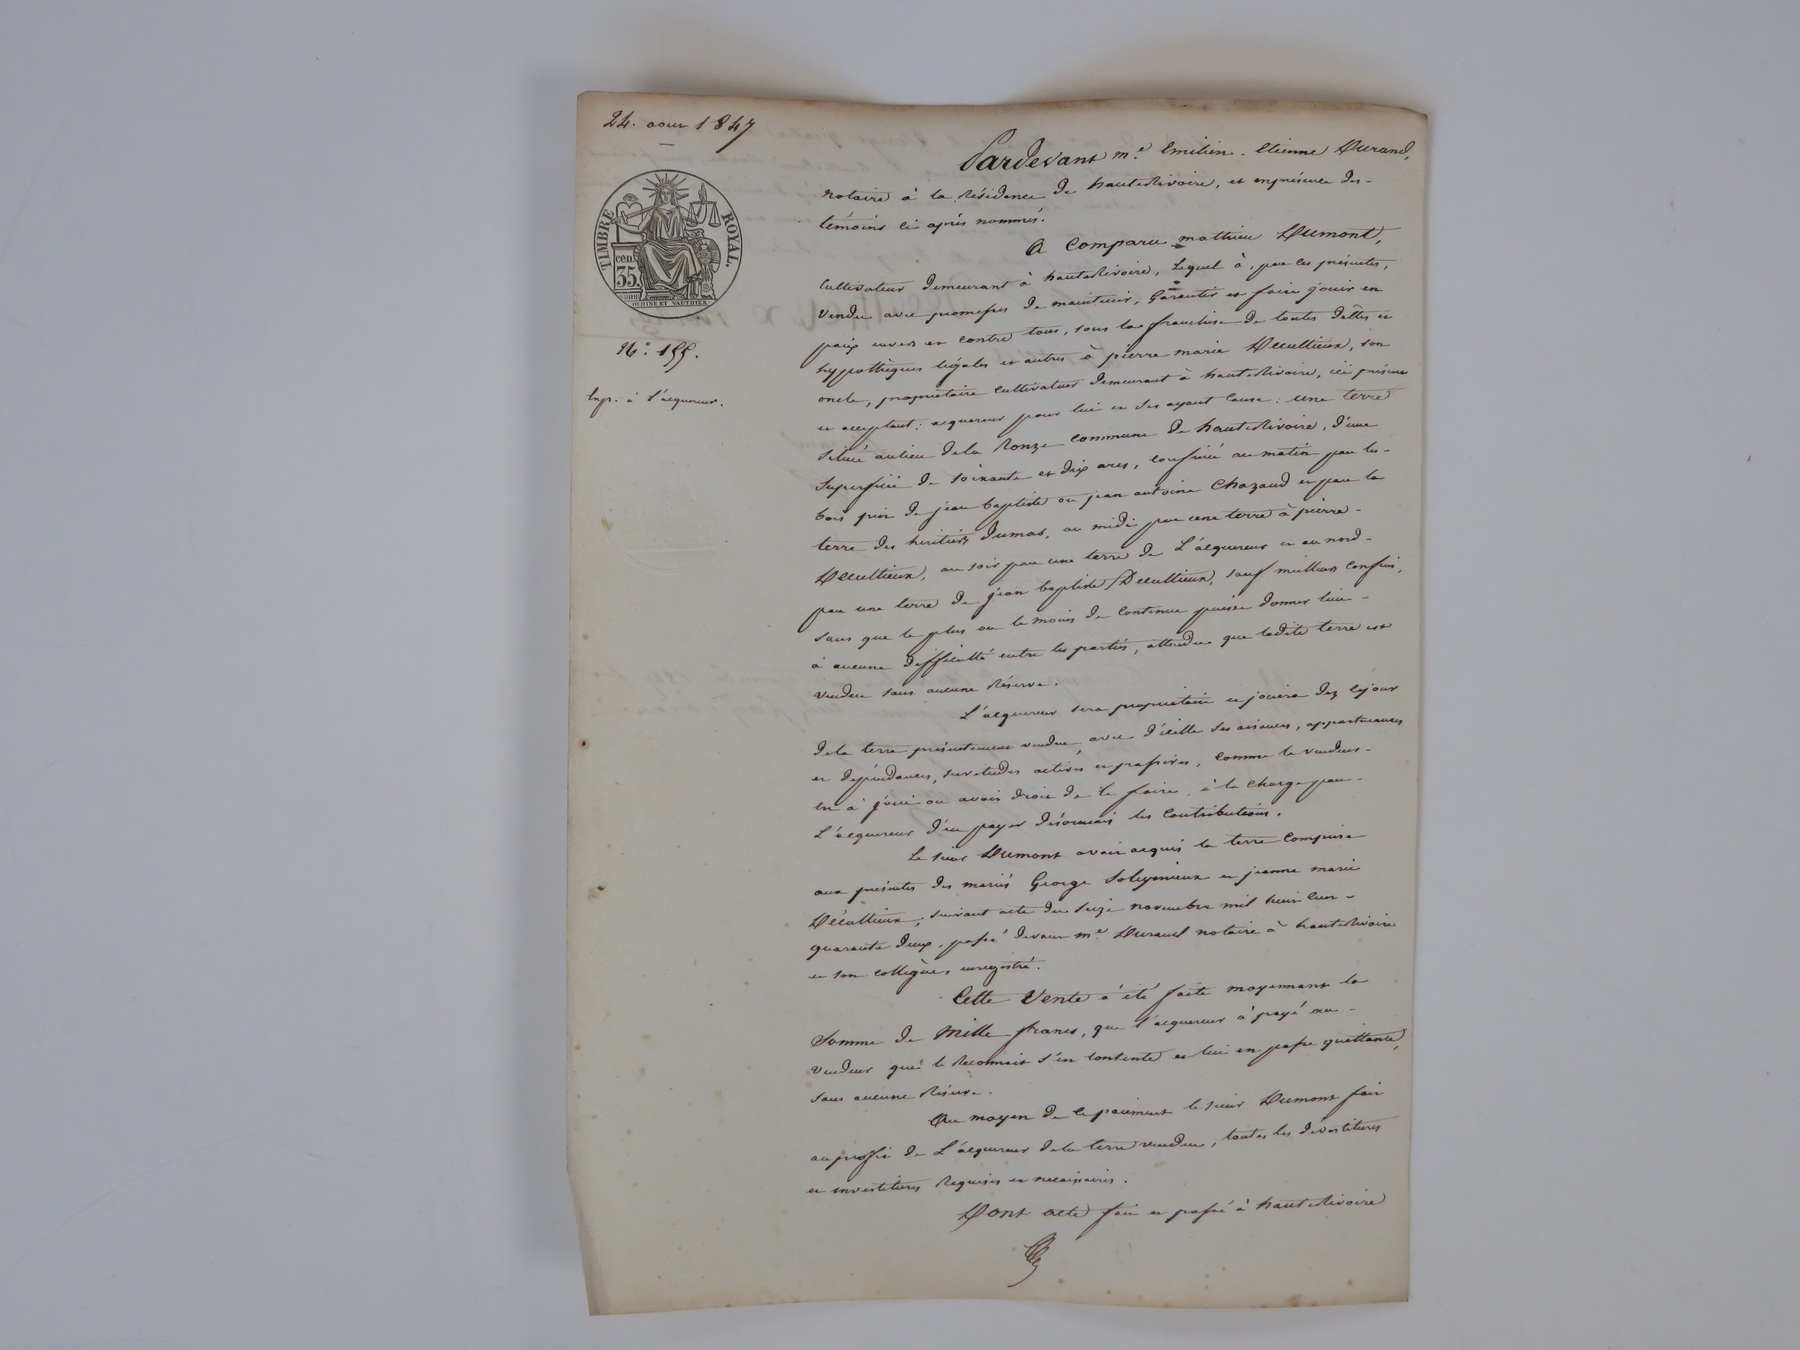 24. aout 1847
TIMBRE ROYAL.
cen.
35.
OUDINE ET VAUTHIER
N.° 155.
Exp. à l'acquereur.
Pardevant m.e Emilien-Etienne Durand,
notaire à la Résidence de hauteRivoire, et en présence des-
témoins ci après nommés.
A Comparu mathieu Dumont,
Cultivateur demeurant à hauteRivoire, Lequel à, par ces présentes,
Vendu avec promesses de maintenir, Garantir et faire jouir en
paix envers et contre tous, sous la franchise de toutes dettes et
hypothèques légales et autres à pierre marie Décultieux, son
oncle, propriétaire cultivateur demeurant à hauteRivoire, ici présent
et acceptant: acquereur pour lui et ses ayant Cause: une terre
située au lieu de la Ronze commune de hauteRivoire, d'une
Superficie de soixante et dix ares, confinée au matin par les-
bois pin de jean baptiste ou jean antoine Chazaud et par la
terre des heritiers Dumas, au midi par une terre à pierre-
Décultieux, au soir par une terre de L'acquereur et au nord-
par une terre de jean baptiste Décultieux, sauf meilleurs confins,
sans que le plus ou le moins de contenue puisse donner lieu-
à aucune difficulté entre les parties, attendu que ladite terre est
vendue sans aucune Réserve.
L'acquereur sera propriétaire et jouira dez cejour
de la terre présentement vendue, avec d'icelle ses aisances, appartenances
et dépendances, servitudes actives et passives, comme le vendeur-
en à joui ou avait droit de le faire, à la charge par-
L'acquereur d'en payer désormais les Contributions.
Le sieur Dumont avait acquis la terre Comprise
aux présentes des mariés George Soleymieux et jeanne marie
Décultieux, suivant acte du seize novembre mil huit cent-
quarante deux, passé devant m.e Durand notaire à hauteRivoire
et son collègue, enregistré.
Cette Vente à été faite moyennant la
Somme de Mille francs, que l'acquereur à payé au-
vendeur qui le Reconnait s'en contente et lui en passe quittance,
sans aucune Réserve.
Au moyen de ce paiement le sieur Dumont fait
au profit de L'acquereur de la terre vendue, toutes les devestitures
et investitures Requises et necessaires.
Dont acte fait et passé à hauteRivoire